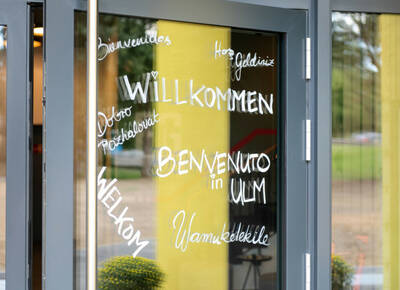 Bienvenidos
Hoş
Geldiniz
WILLKOMMEN
Dobro
Pozhalovat
BENVENUTO
in
ULM
WELKOM
Wamukelekile